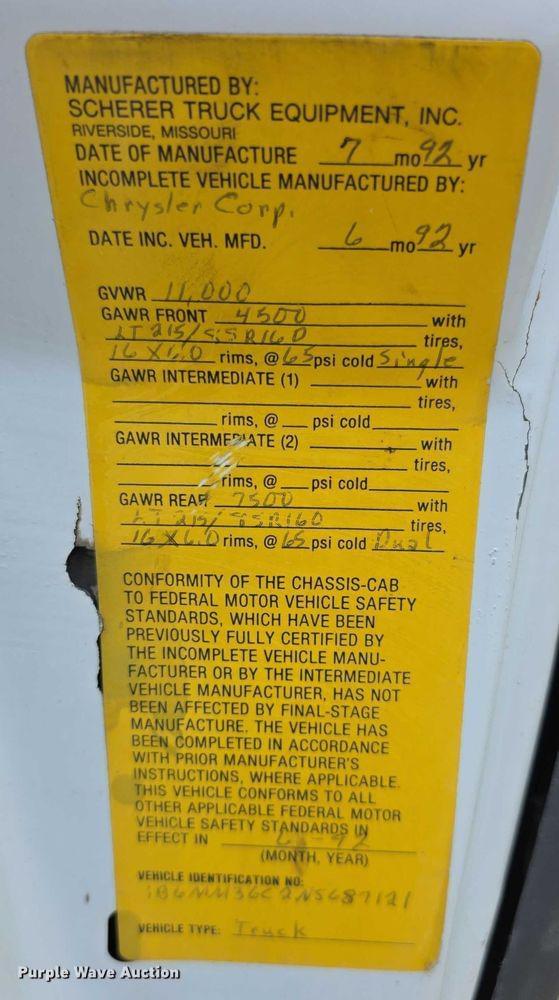 MANUFACTURED BY:
SCHERER TRUCK EQUIPMENT, INC.
RIVERSIDE, MISSOURI
DATE OF MANUFACTURE 7 mo 92 yr
INCOMPLETE VEHICLE MANUFACTURED BY:
Chrysler Corp.
DATE INC. VEH. MFD. 6 mo 92 yr
GVWR 11,000
GAWR FRONT 4500 with
LT 215/85R16D tires,
16X6.0 rims, @ 65 psi cold Single
GAWR INTERMEDIATE (1) with
tires,
rims, @ psi cold
GAWR INTERMEDIATE (2) with
tires,
rims, @ psi cold
GAWR REAR 7500 with
LT 215/85R16D tires,
16X6.0 rims, @ 65 psi cold Dual
CONFORMITY OF THE CHASSIS-CAB
TO FEDERAL MOTOR VEHICLE SAFETY
STANDARDS, WHICH HAVE BEEN
PREVIOUSLY FULLY CERTIFIED BY
THE INCOMPLETE VEHICLE MANU-
FACTURER OR BY THE INTERMEDIATE
VEHICLE MANUFACTURER, HAS NOT
BEEN AFFECTED BY FINAL-STAGE
MANUFACTURE. THE VEHICLE HAS
BEEN COMPLETED IN ACCORDANCE
WITH PRIOR MANUFACTURER'S
INSTRUCTIONS, WHERE APPLICABLE.
THIS VEHICLE CONFORMS TO ALL
OTHER APPLICABLE FEDERAL MOTOR
VEHICLE SAFETY STANDARDS IN
EFFECT IN 6-92
(MONTH, YEAR)
VEHICLE IDENTIFICATION NO:
VEHICLE TYPE: Truck
Purple Wave Auction